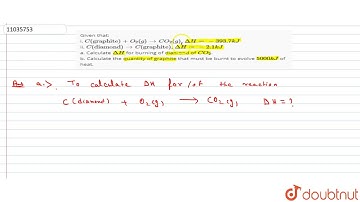 11035753
Given that:
i. C(graphite) + O₂(g) → CO₂(g), ΔH = − 393.7kJ
ii. C(diamond) → C(graphite), ΔH = − 2.1kJ
a. Calculate ΔH for burning of diamond of CO₂.
b. Calculate the quantity of graphite that must be burnt to evolve 5000kJ of
heat.
Ans a.> To calculate ΔH for/of the reaction
C (diamond) + O₂(g) ⟶ CO₂(g) ΔH = ?
doubtnut